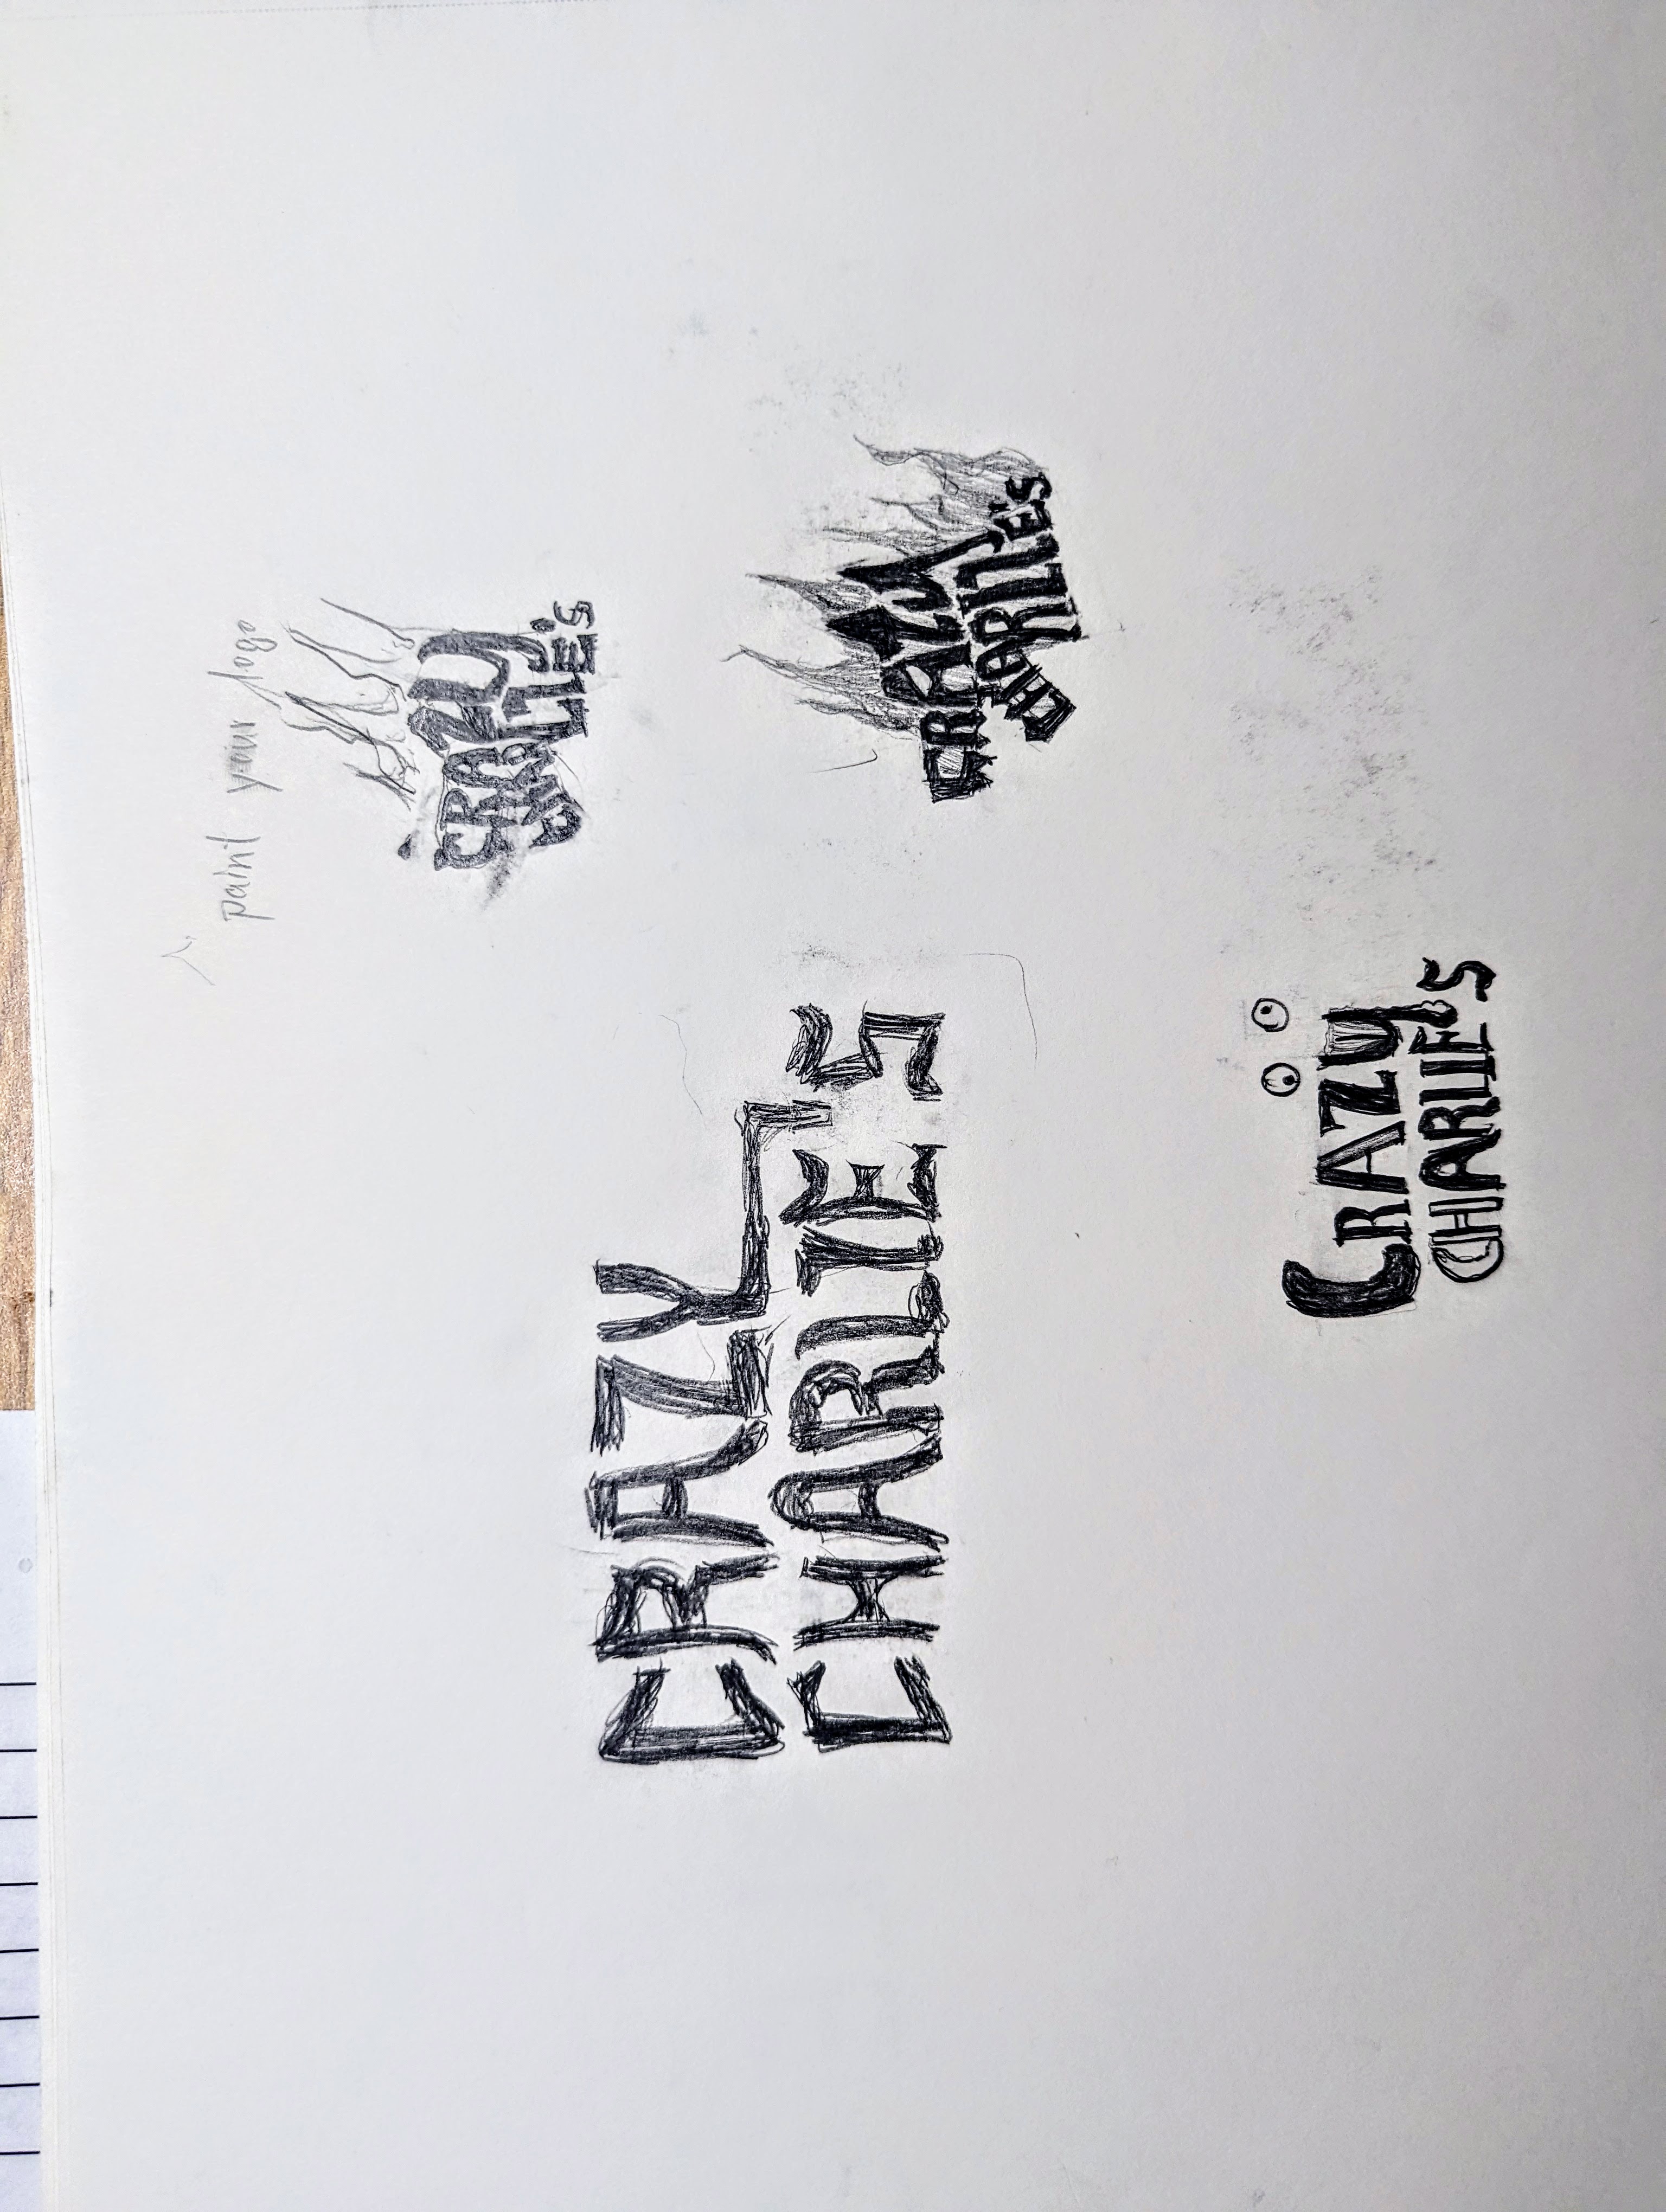 paint your logo
CRAZY
CHARLIE'S
CRAZY
CHARLIE'S
CRAZY
CHARLIE'S
CRAZY
CHARLIE'S